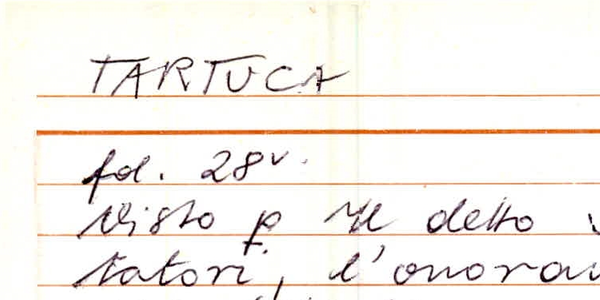 TARTUCA
fol. 28v.
Visto p. il detto
tatori, l'onora